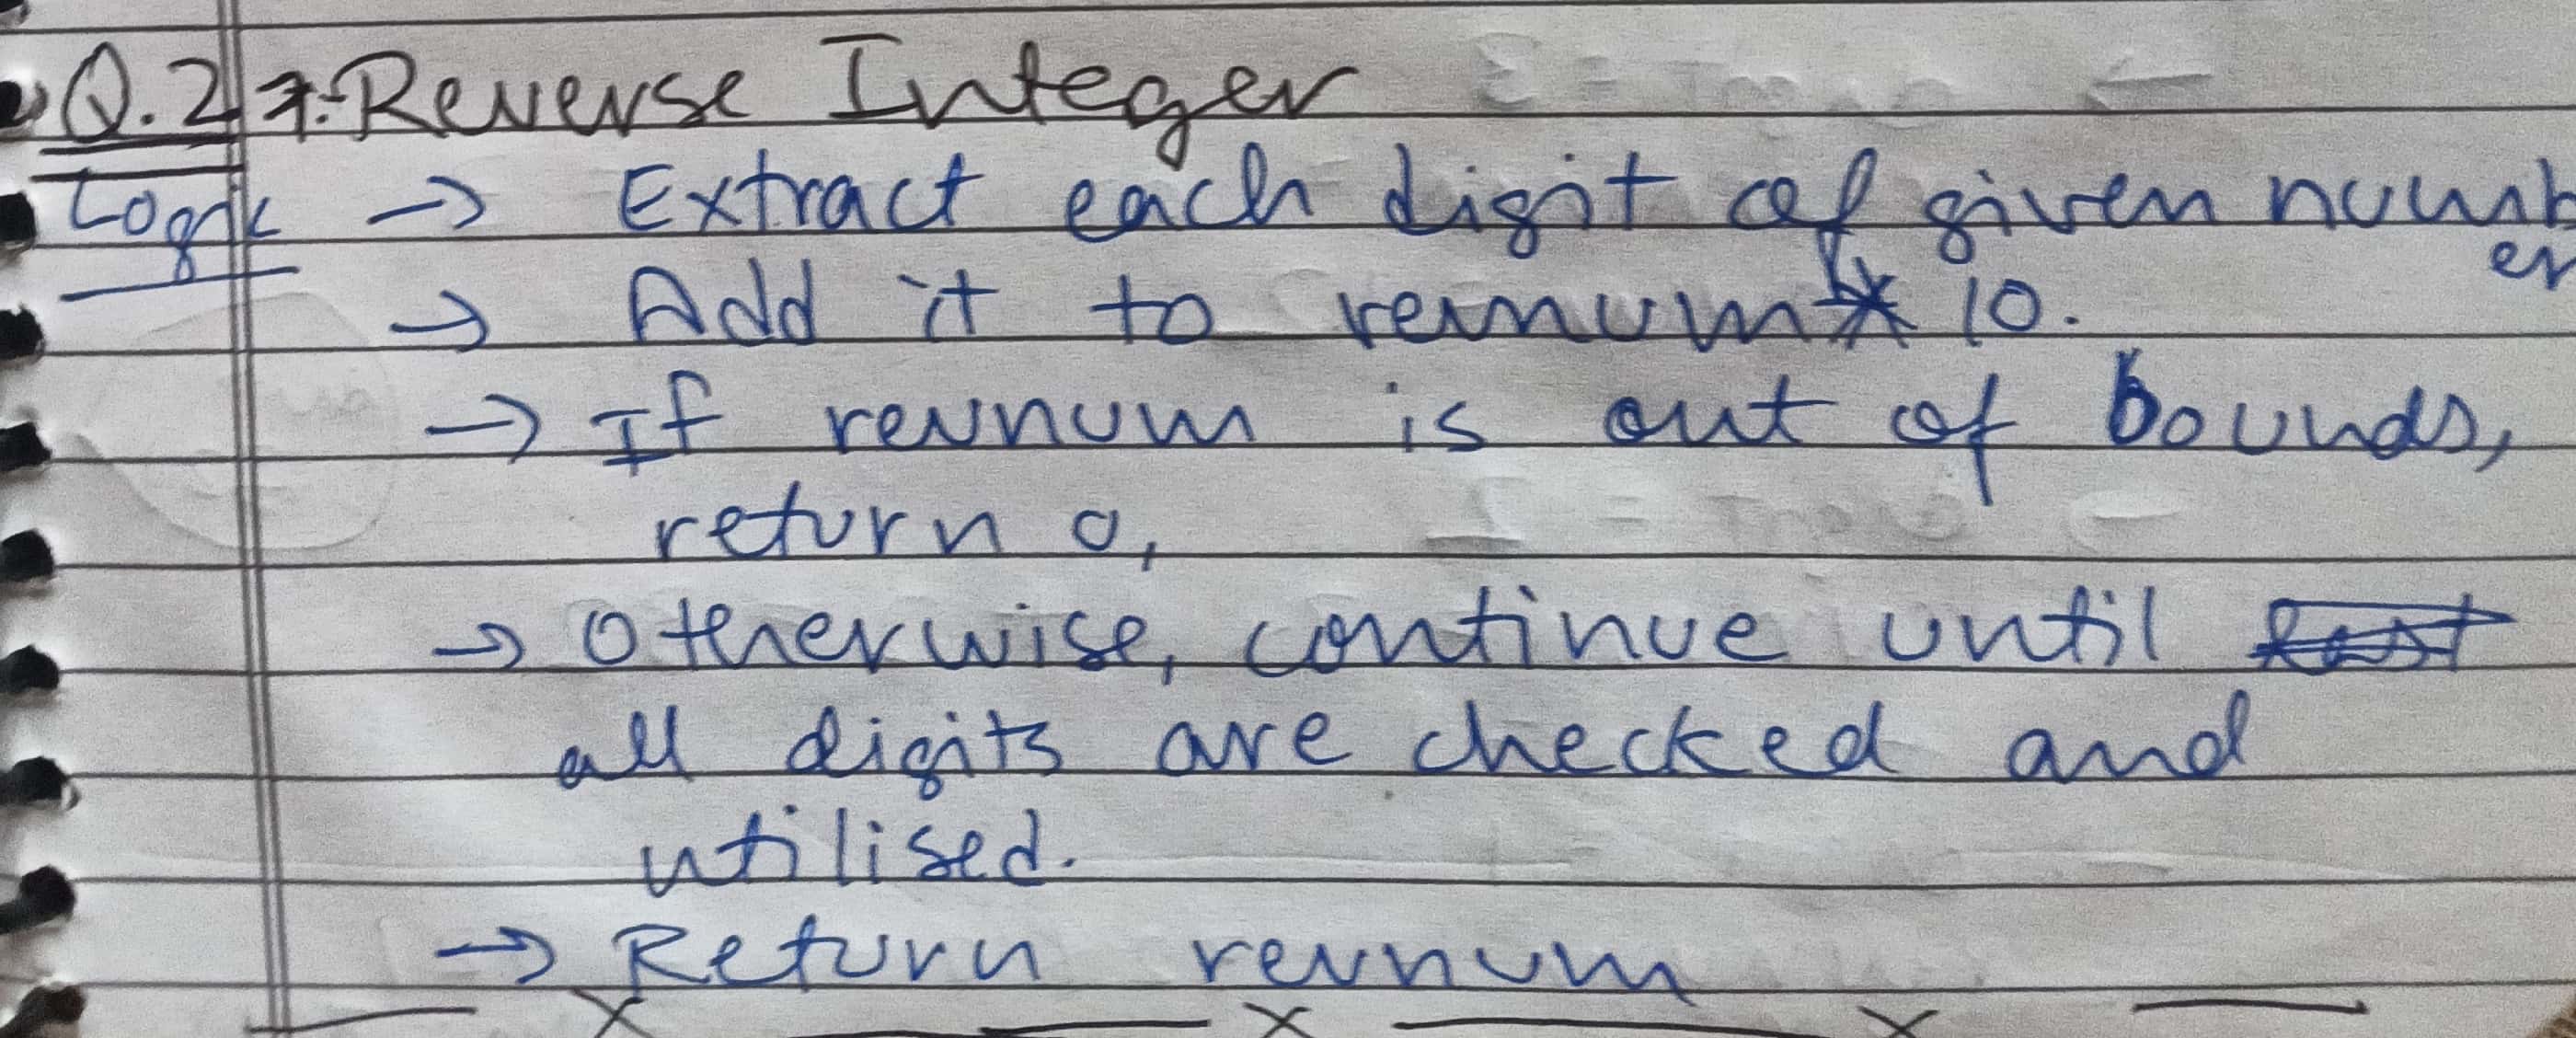 Q.2 7:- Reverse Integer
Logic → Extract each digit of given numb
er
→ Add it to revnum * 10.
→ If revnum is out of bounds,
return 0,
→ Otherwise, continue until
all digits are checked and
utilised.
→ Return revnum